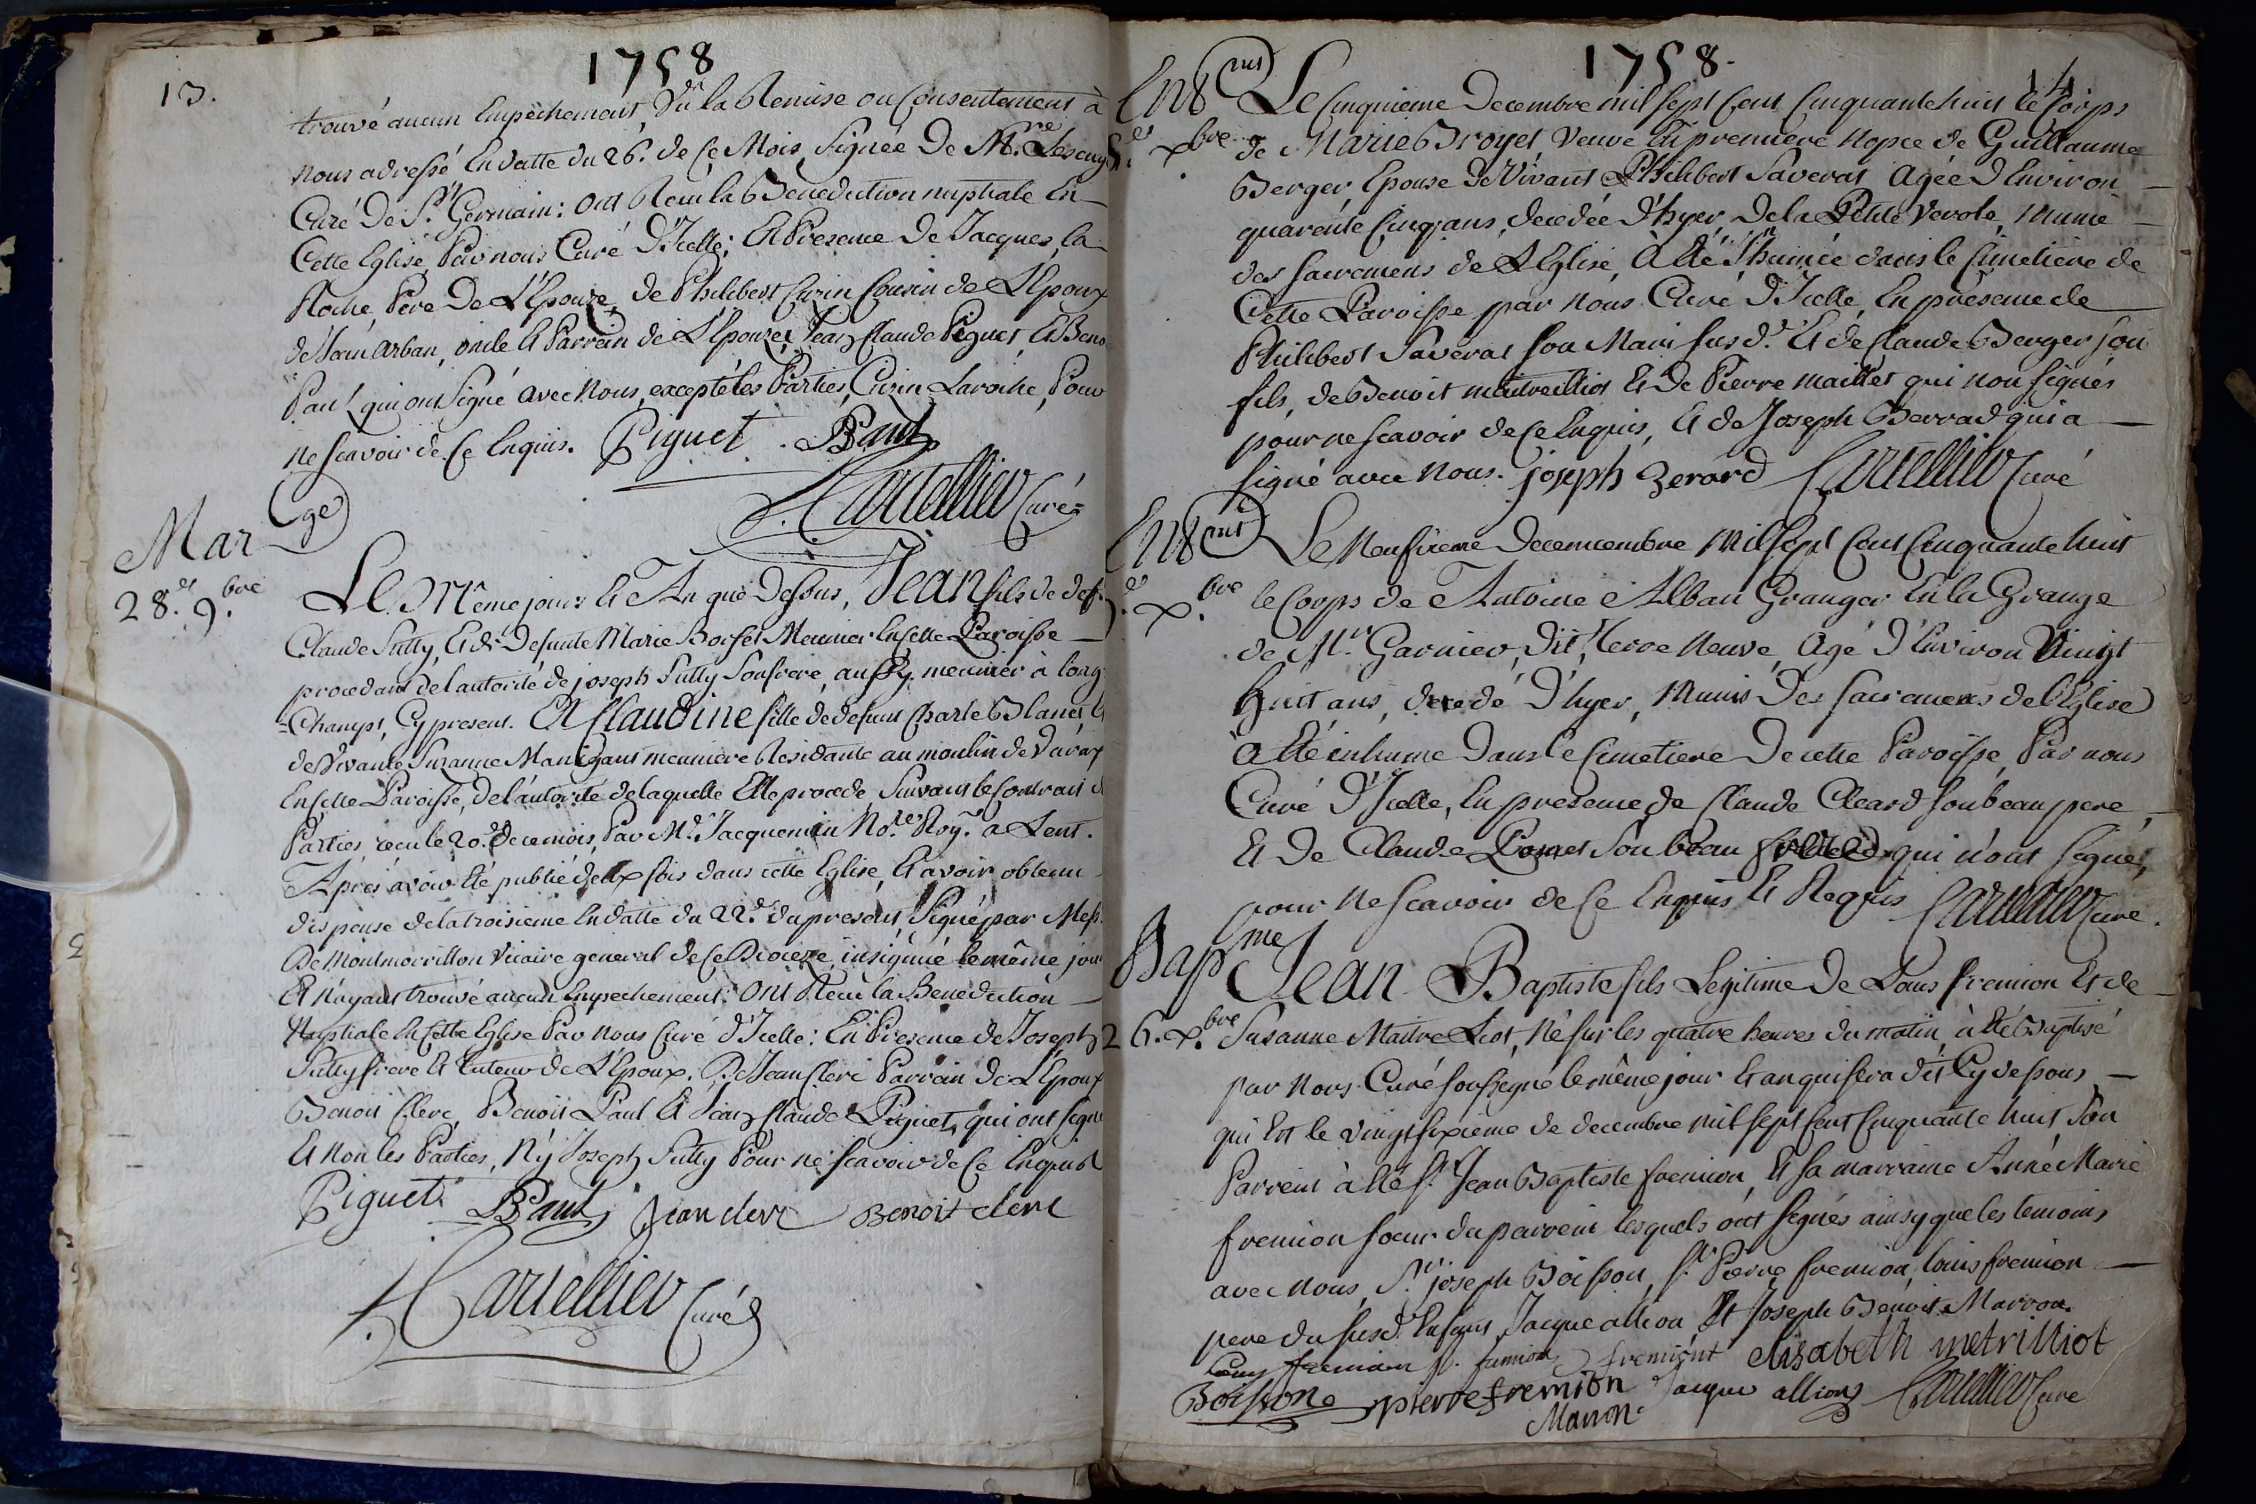 1758
13.
trouvé aucun Empêchement Vû la Remise ou Consentement à
nous adressé En datte du 26. de Ce Mois, signée De Mre
Curé De St. Germain: ont Recu la Benediction nuptiale En
Cette Eglise Par nous Curé D'Icelle; En Presence De Jacques la
Roche, Pere De L'Epouze, de Philibert Curin Cousin de L'Epoux
de Jean Arban, oncle Et Parrain de L'Epouze, Jean Claude Piguet, Et Benoi
Paul qui ont signé avec Nous, excepté les Parties, Curin Laroche, Pour
ne scavoir de Ce Enquis. Piguet. BPaul
Cartellier Curé
Mar ge
28.es 9.bre
Le Même jour Et An que Dessus, Jean fils de def.
Claude Sutty, Et de Defunte Marie Meunier En Cette Paroisse
procedant de l'autorité de joseph Sutty Son frere, aussy meunier à long
-Champs, Cy present. Et Claudine fille de defunt Charle Blanc Et
de Vivante Suzanne meuniere Residante au moulin de
En Cette Paroisse, de l'autorité de laquelle Elle procede, Suivant le Contrait d
Parties recu le 20.e de ce mois, Par Me. Jacquemin No.re Roy. a Lent.
Après avoir Eté publié deux fois dans cette Eglise, Et avoir obtenu
dispense de la troisieme En datte du 22.e du present, Signé par Mess.
De Montmorrillon Vicaire general de Ce Dioceze, insinué le même jour
Et N'ayant trouvé aucun Empechement: ont Recu la Benediction
Nuptiale En Cette Eglise Par nous Curé D'Icelle: En Presence de Joseph
Sutty frere Et tuteur de L'Epoux, De Jean Clerc Parrain de L'Epoux
Benoit Clerc, Benoit Paul Et Jean Claude Piguet, qui ont signé
Et Non les Parties, Ny Joseph Sutty Pour ne scavoir de Ce Enquis
Piguet BPaul jean clerc Benoit clerc
Cartellier Curé
1758.
14
Ens mt
5.es x.bre
Le Cinquieme Decembre mil sept Cent Cinquante huit le Corps
de Marie Broyet Veuve En premiere Nopce de Guillaume
Berger, Epouse De Vivant Philibert Saverat Agée D'Environ
quarente Cinq ans, decedée D'hyer, De la Petite Verole, Munie
des sacremens de L'Eglise, A Eté Inhumée dans le Cimetiere de
Cette Paroisse par Nous Curé D'Icelle, En presence de
Philibert Saverat son Mari susd.t Et de Claude Berger son
fils, de Benoit maitrelliot Et De Pierre maillet qui non signés
pour ne scavoir de Ce Enquis, Et de Joseph Berrad qui a
signé avec Nous. joseph Berard Cartellier Curé
Ens mt
9.es x.bre
Le Neufvieme Decemcembre Mil sept Cent Cinquante huit
le Corps de Antoine Alban Granger En la Grange
de Mr. Garnier, Dit, Terre Neuve, Agé D'Environ Vingt
huit ans, decedé D'hyer, Munis Des sacremens de l'Eglise
a Eté inhume Dans le Cimetiere De cette Paroisse, Par nous
Curé D'Icelle, En presence de Claude Cleard son beau pere,
Et De Claude Pomet Son beau qui n'ont signé,
pour Ne scavoir de Ce Enquis Et Requis Cartellier Cure.
Bap me
26. x.bre
Jean Baptiste fils Legitime De Louis fremion Et de
Susanne Maitre Liot, Né sur les quatre heures du matin, à Eté Baptisé
par Nous Curé soussigné le même jour Et an qui sera dit Cy dessous,
qui Est le vingt sixieme de decembre mil sept Cent Cinquante huit Son
Parrein à Eté Sr. Jean Baptiste fremion, Et sa marraine Anne Marie
fremion soeur du parrein lesquels ont signés ainsy que les temoins
avec Nous, Sr. joseph Boisson, Sr. Pierre fremion, louis fremion
pere du susd.t Enfant, Jacque allion Et Joseph Benoit Marron.
Louis fremion fremion fremiont elisabeth metrilliot
Boisson pierre fremion Jacque allion Cartellier Cure
Marron.